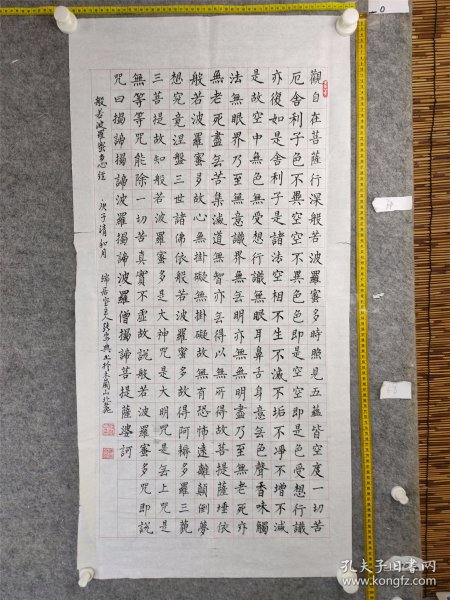 觀自在菩薩行深般若波羅蜜多時照見五蘊皆空度一切苦
厄舍利子色不異空空不異色色即是空空即是色受想行識
亦復如是舍利子是諸法空相不生不滅不垢不淨不增不減
是故空中無色無受想行識無眼耳鼻舌身意无色聲香味觸
法無眼界乃至無意識界無无明亦無無明盡乃至無老死亦
無老死盡无苦集滅道無智亦无得以無所得故菩提薩埵依
般若波羅蜜多故心無掛礙無掛礙故無有恐怖遠離顛倒夢
想究竟涅盤三世諸佛依般若波羅蜜多故得阿耨多羅三藐
三菩提故知般若波羅蜜多是大神咒是大明咒是无上咒是
無等等咒能除一切苦真實不虛故說般若波羅蜜多咒即說
咒曰揭諦揭諦波羅揭諦波羅僧揭諦菩提薩婆訶
般若波羅蜜多心經 庚子清和月
孔夫子旧书网
www.kongfz.com